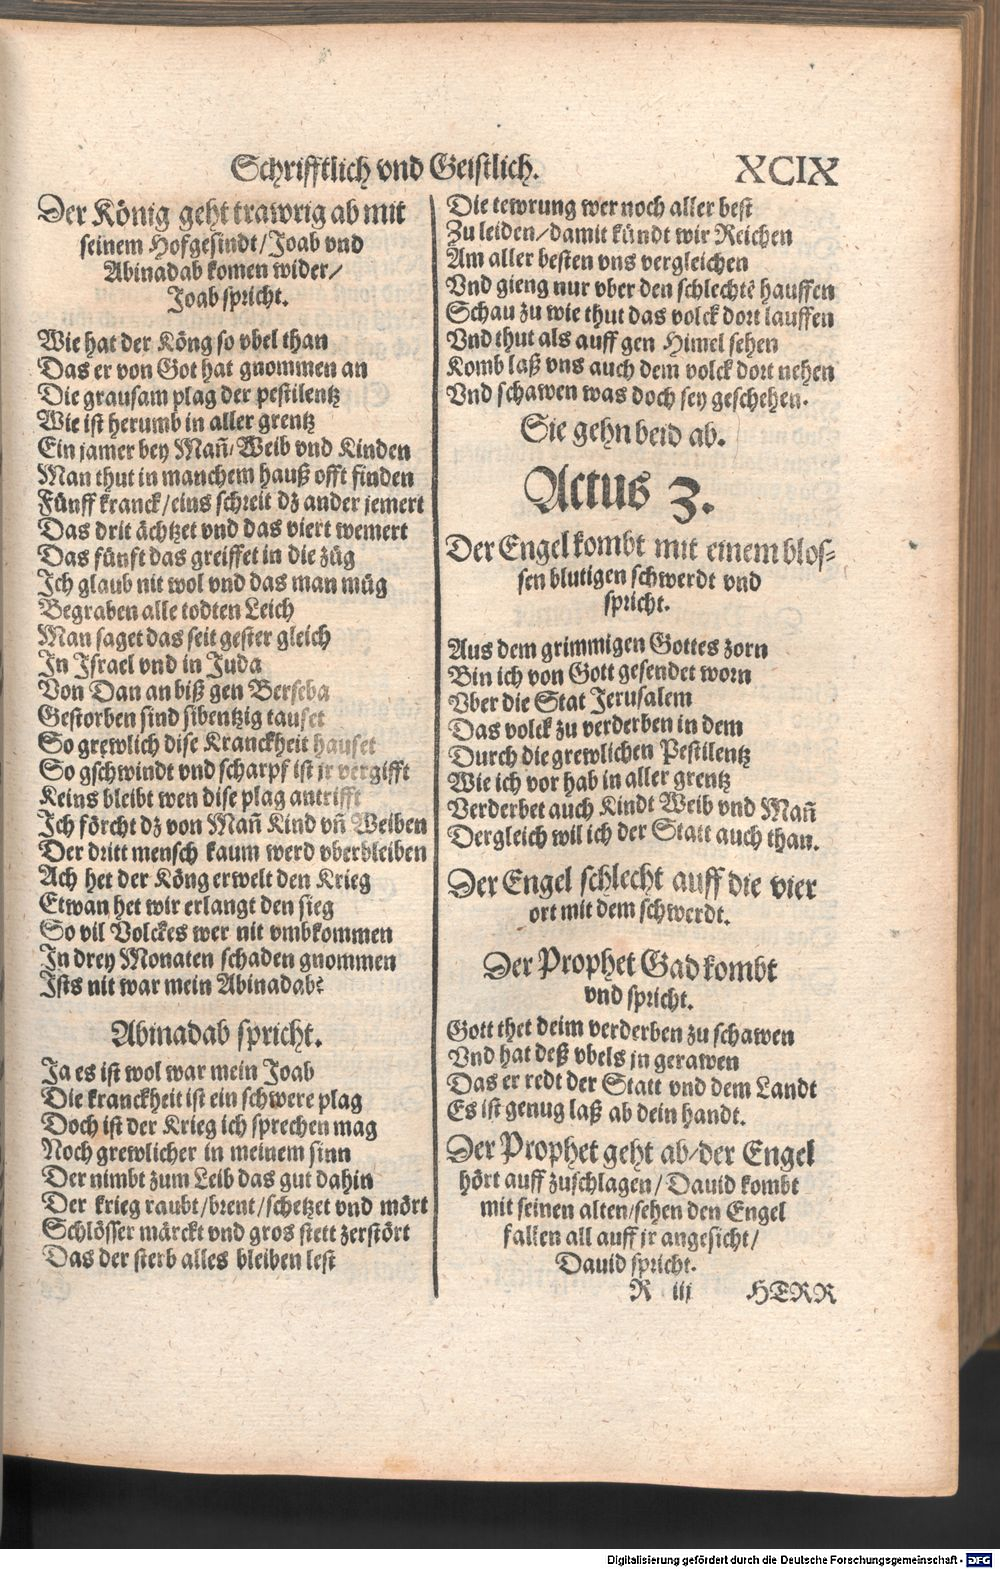 Schrifftlich vnd Geistlich.
XCIX
Der König geht trawrig ab mit
seinem Hofgesindt/Joab vnd
Abinadab komen wider/
Joab spricht.
Wie hat der Köng so vbel than
Das er von Got hat gnommen an
Die grausam plag der pestilentz
Wie ist herumb in aller grentz
Ein jamer bey Man̄/Weib vnd Kinden
Man thut in manchem hauß offt finden
Fünff kranck/eins schreit dz ander jemert
Das drit ächtzet vnd das viert wemert
Das fünft das greiffet in die züg
Ich glaub nit wol vnd das man müg
Begraben alle todten Leich
Man saget das seit gester gleich
In Israel vnd in Juda
Von Dan an biß gen Berseba
Gestorben sind sibentzig tauset
So grewlich dise Kranckheit hauset
So gschwindt vnd scharpf ist jr vergifft
Keins bleibt wen dise plag antrifft
Ich förcht dz von Man̄ Kind vn̄ Weiben
Der dritt mensch kaum werd vberbleiben
Ach het der Köng erwelt den Krieg
Etwan het wir erlangt den sieg
So vil Volckes wer nit vmbkommen
In drey Monaten schaden gnommen
Ists nit war mein Abinadab?
Abinadab spricht.
Ja es ist wol war mein Joab
Die kranckheit ist ein schwere plag
Doch ist der Krieg ich sprechen mag
Noch grewlicher in meinem sinn
Der nimbt zum Leib das gut dahin
Der krieg raubt/brent/schetzet vnd mört
Schlösser märckt vnd gros stett zerstört
Das der sterb alles bleiben lest
Die tewrung wer noch aller best
Zu leiden/damit kündt wir Reichen
Am aller besten vns vergleichen
Vnd gieng nur vber den schlechtē hauffen
Schau zu wie thut das volck dort lauffen
Vnd thut als auff gen Himel sehen
Komb laß vns auch dem volck dort nehen
Vnd schawen was doch sey geschehen.
Sie gehn beid ab.
Actus 3.
Der Engel kombt mit einem blos-
sen blutigen schwerdt vnd
spricht.
Aus dem grimmigen Gottes zorn
Bin ich von Gott gesendet worn
Vber die Stat Jerusalem
Das volck zu verderben in dem
Durch die grewlichen Pestilentz
Wie ich vor hab in aller grentz
Verderbet auch Kindt Weib vnd Man̄
Dergleich wil ich der Statt auch than.
Der Engel schlecht auff die vier
ort mit dem schwerdt.
Der Prophet Gad kombt
vnd spricht.
Gott thet deim verderben zu schawen
Vnd hat deß vbels jn gerawen
Das er redt der Statt vnd dem Landt
Es ist genug laß ab dein handt.
Der Prophet geht ab/der Engel
hört auff zuschlagen/Dauid kombt
mit seinen alten/sehen den Engel
fallen all auff jr angesicht/
Dauid spricht.
R iij HERR
Digitalisierung gefördert durch die Deutsche Forschungsgemeinschaft - DFG